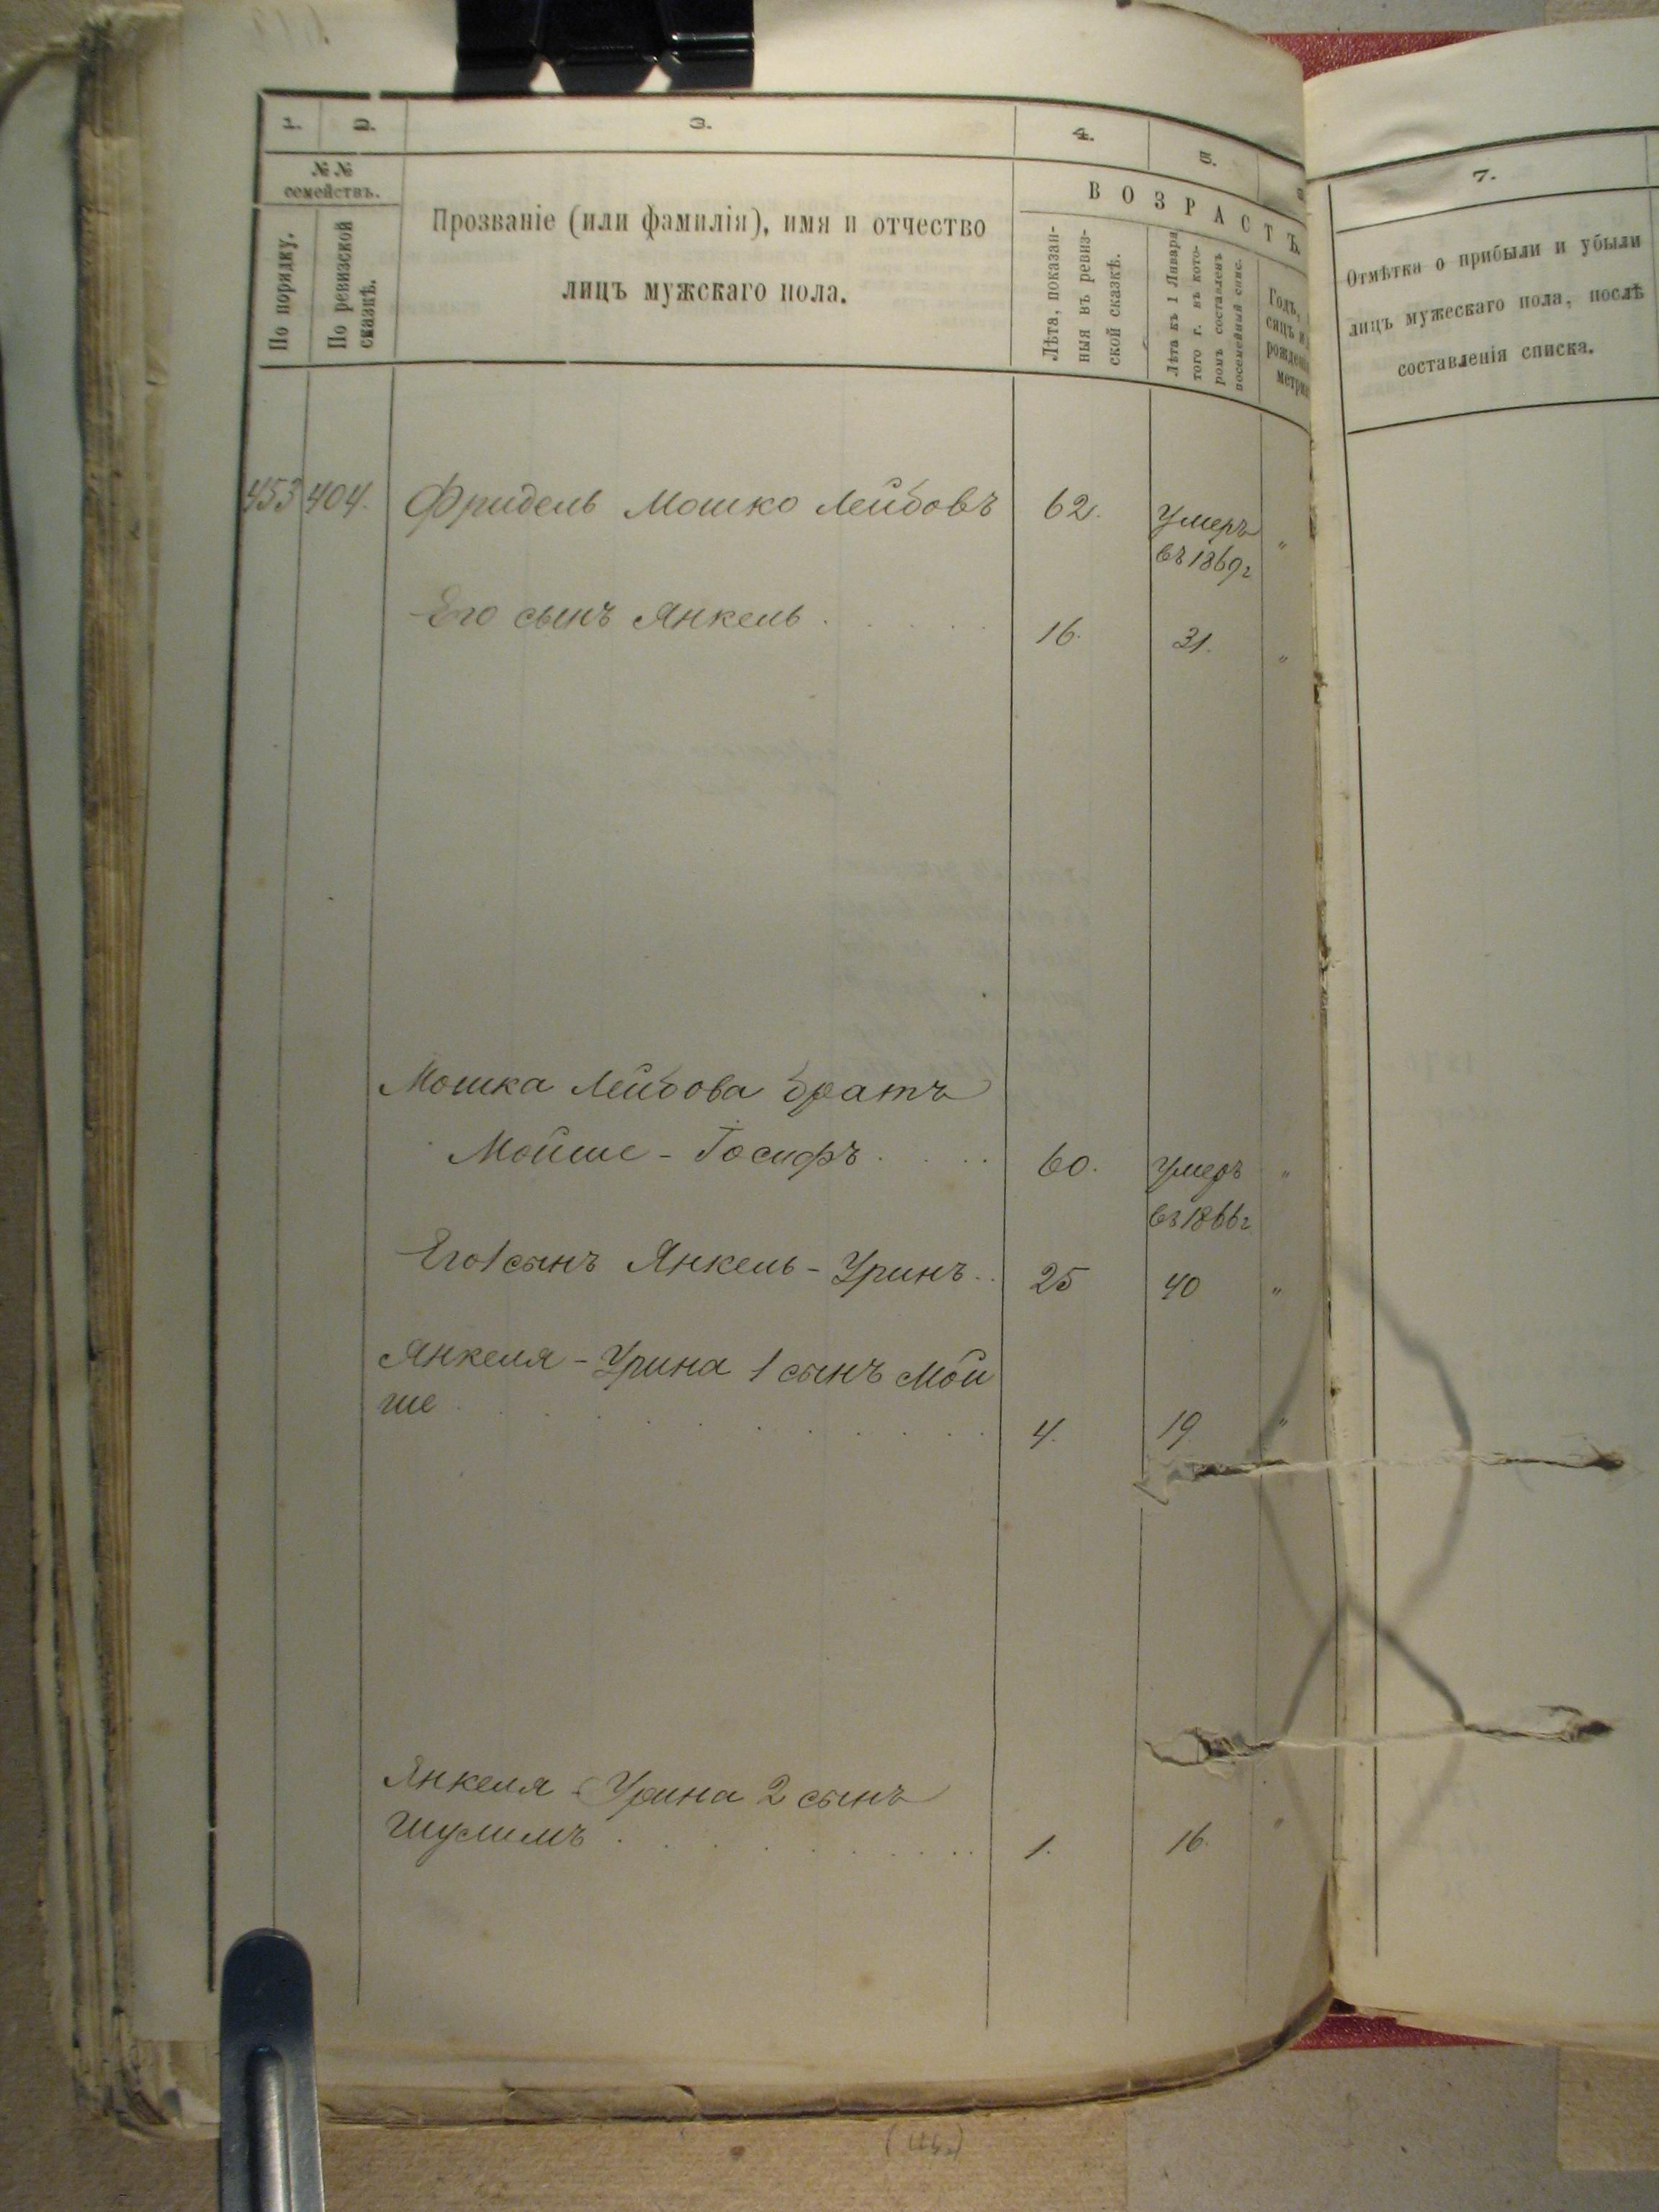 1.
2.
3.
4.
5.
7.
№ №
семействъ.
По порядку.
По ревизской
сказкѣ.
Прозваніе (или фамилія), имя и отчество
лицъ мужскаго пола.
ВОЗРАСТЪ.
Лѣта, показан-
ныя въ ревиз-
ской сказкѣ.
Лѣта къ 1 Января
того г. въ кото-
ромъ составленъ
посемейный спис.
Годъ,
Отмѣтка о прибыли и убыли
лицъ мужескаго пола, послѣ
составленія списка.
453 404. Фридель Мошко Лейбовъ 62. Умеръ "
въ 1869 г
Его сынъ Янкель . . . . . 16. 31. "
Мошка Лейбова братъ
Мойше - Іосифъ . . . . 60. Умеръ "
въ 1866 г
Его 1 сынъ Янкель - Уринъ . . 25 40 "
Янкеля - Урина 1 сынъ Мой
ше . . . . . . . . . . 4. 19 "
Янкеля - Урина 2 сынъ
Шулимъ . . . . . . . . 1. 16. "